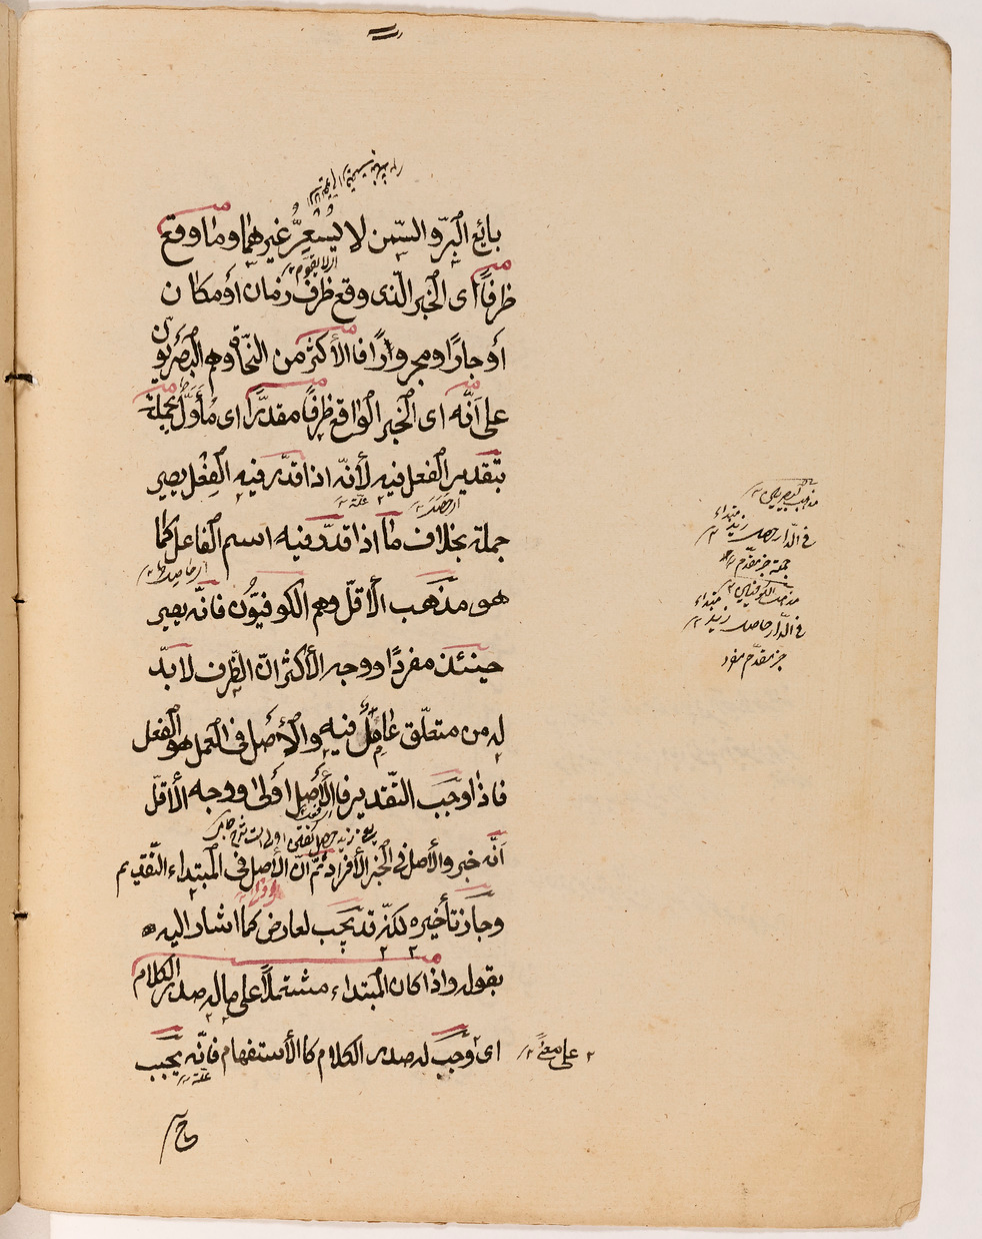 بائع البرّ والسّمن لا يُسَعِّرُ غيرهما وما وقع
ظرفًا اى الخبر الّذى وقع ظرف زمان أو مكان
أو جارًا ومجرورًا فالأكثر من النّحاة وهم البَصْريّون
على أنّه اى الخبر الواقع ظرفًا مقدّرٌ اى مُأوَّلٌ بجملة
بتقدير الفعل فيه لأنّه اذا قدّر فيه الفِعْل يصير
جملة بخلاف ما اذا قدّر فيه اسم الفاعل كما
هو مذهب الأقلّ وهم الكوفيّون فانّه يصير
حينئذ مفردًا ووجه الأكثر انّ الظّرف لابدّ
له من متعلّق عاملٍ فيه والأصل فى العمل هو الفعل
فاذا وجَب التّقدير فالأصل اولى ووجه الأقلّ
انّه خبر والأصل فى الخبر الأفراد ثمّ انّ الأصل فى المبتداء التّقديم
وجاز تأخيره لكنّه قد يجب لعارض كما اشار اليه
بقوله واذا كان المبتداء مشتملًا على ما له صدر الكلام
اى وجَب له صدر الكلام كالأستفهام فانّه يجب
علّة
على معنى
مذهب البصريين
زيد مبتداء
فى الدّار حصل
جملة خبر مقدّم
مذهب الكوفيين
زيد مبتداء
فى الدّار حاصل
خبر مقدّم مفرد